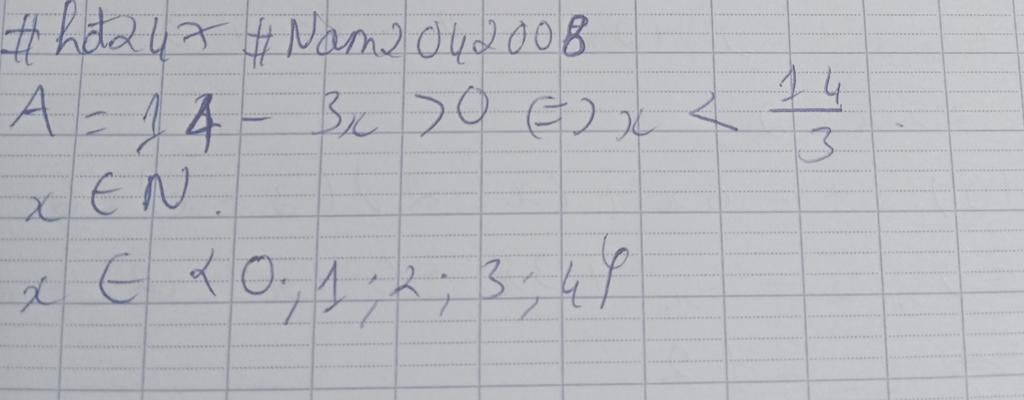 #hd247 #Nam2042008
A = 14 - 3x > 0 ⇔ x < 14/3.
x ∈ N.
x ∈ {0; 1; 2; 3; 4}